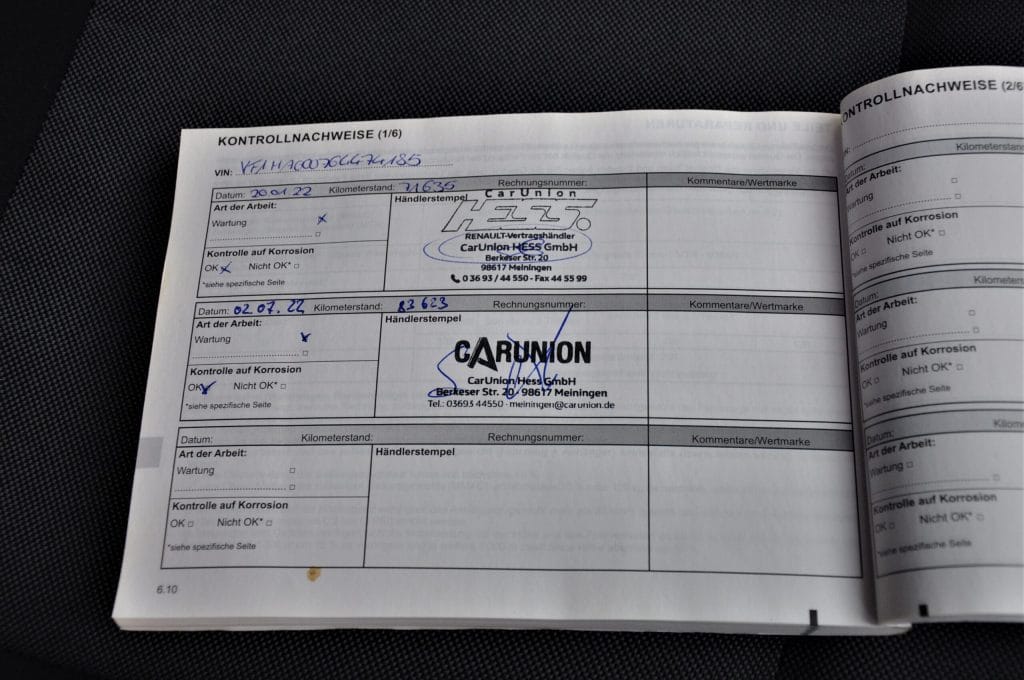 KONTROLLNACHWEISE (1/6)
VIN:
Datum: 20.01.22 Kilometerstand: 71635 Rechnungsnummer: Kommentare/Wertmarke
Art der Arbeit:
Wartung
Kontrolle auf Korrosion
OK Nicht OK*
*siehe spezifische Seite
Händlerstempel
CarUnion
HESS
RENAULT-Vertragshändler
CarUnion HESS GmbH
Berkeser Str. 20
98617 Meiningen
0 36 93 / 44 550 - Fax 44 55 99
Datum: 02.07.22 Kilometerstand: 83623 Rechnungsnummer: Kommentare/Wertmarke
Art der Arbeit:
Wartung
Kontrolle auf Korrosion
OK Nicht OK*
*siehe spezifische Seite
Händlerstempel
CARUNION
CarUnion Hess GmbH
Berkeser Str. 20 · 98617 Meiningen
Tel.: 03693 44550 · meiningen@carunion.de
Datum: Kilometerstand: Rechnungsnummer: Kommentare/Wertmarke
Art der Arbeit:
Wartung
Kontrolle auf Korrosion
OK Nicht OK*
*siehe spezifische Seite
Händlerstempel
6.10
ONTROLLNACHWEISE (2/6
Kilometerst
Datum:
Art der Arbeit:
Wartung
Kontrolle auf Korrosion
OK Nicht OK*
*siehe spezifische Seite
Kilometers
Datum:
Art der Arbeit:
Wartung
Kontrolle auf Korrosion
OK Nicht OK*
*siehe spezifische Seite
Kilome
Datum:
Art der Arbeit:
Wartung
Kontrolle auf Korrosion
OK Nicht OK*
*siehe spezifische Seite